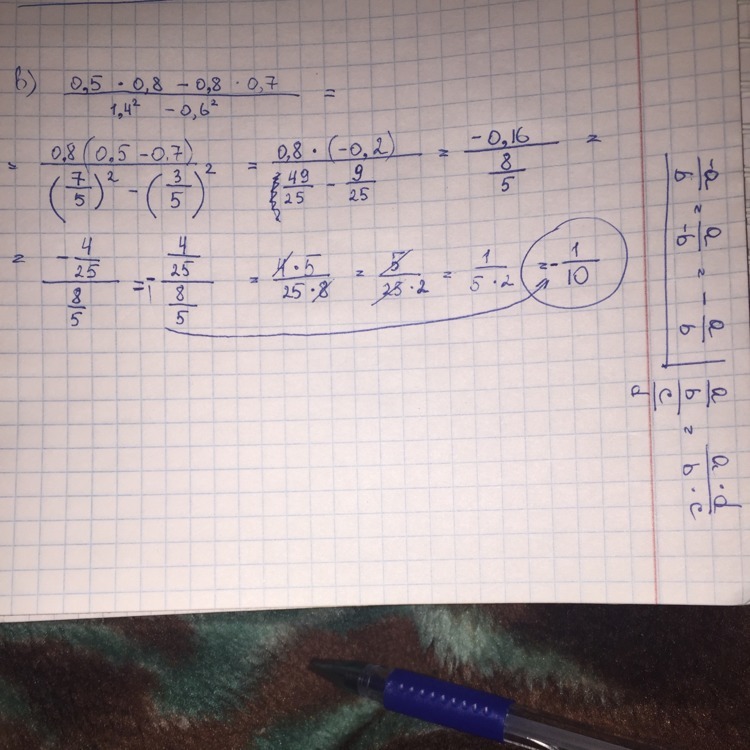 в) (0,5 · 0,8 − 0,8 · 0,7)/(1,4² − 0,6²) =
= 0,8(0,5 − 0,7)/((7/5)² − (3/5)²) = 0,8 · (−0,2)/(49/25 − 9/25) = −0,16/(8/5) =
= (−4/25)/(8/5) = −(4/25)/(8/5) = 4·5/25·8 = 5/25·2 = 1/5·2 = −1/10
−a/b = a/−b = −a/b
(a/b)/(c/d) = a·d/b·c